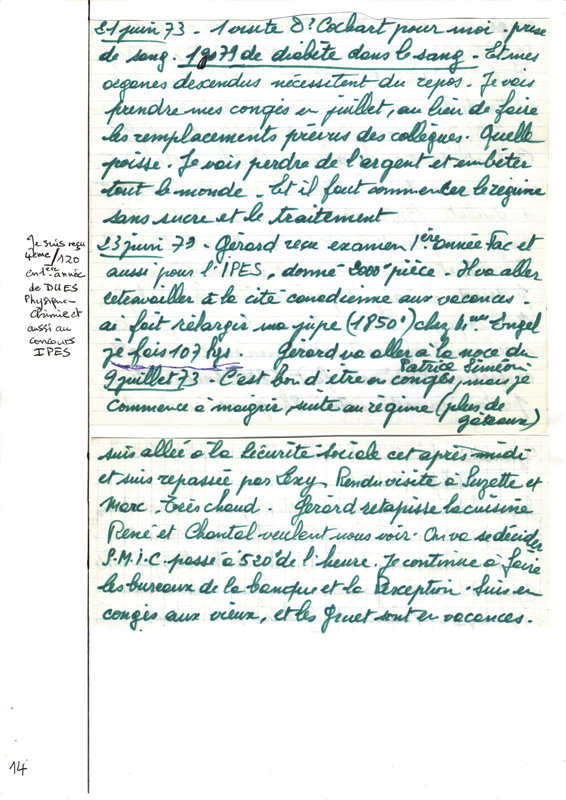 21 juin 73 - 1 visite Dr Cochart pour moi - prise
de sang. 1g079 de diabète dans le sang - Et mes
organes descendus nécessitent du repos. Je vais
prendre mes congés en juillet, au lieu de faire
les remplacements prévus des collègues. Quelle
poisse. Je vais perdre de l'argent et embêter
tout le monde. Et il faut commencer le régime
sans sucre et le traitement
23 juin 73 - Gérard reçu examen 1ère année Fac et
aussi pour l'IPES, donné pièce. Il va aller
retravailler à la cité canadienne aux vacances -
ai fait rélargir ma jupe (1850°) chez Mme Engel
je fais 107 kgs. Gérard va aller à la noce du
Patrice Siméoni
9 juillet 73 - C'est bon d'être en congés, mais je
commence à maigrir, suite au régime (plus de
gâteaux)
suis allée à la Sécurité Sociale cet après-midi
et suis repassée par Lexy. Rendu visite à Suzette et
Marc. très chaud. Gérard retapisse la cuisine
René et Chantal veulent nous voir. On va se décider
S.M.I.C. passe à 520° de l'heure. Je continue à faire
les bureaux de la banque et la Perception. Suis en
congés aux vieux, et les Gruet sont en vacances.
Je suis reçu
4ème/120
en 1ère année
de DUES
Physique-
Chimie et
aussi au
concours
IPES
14